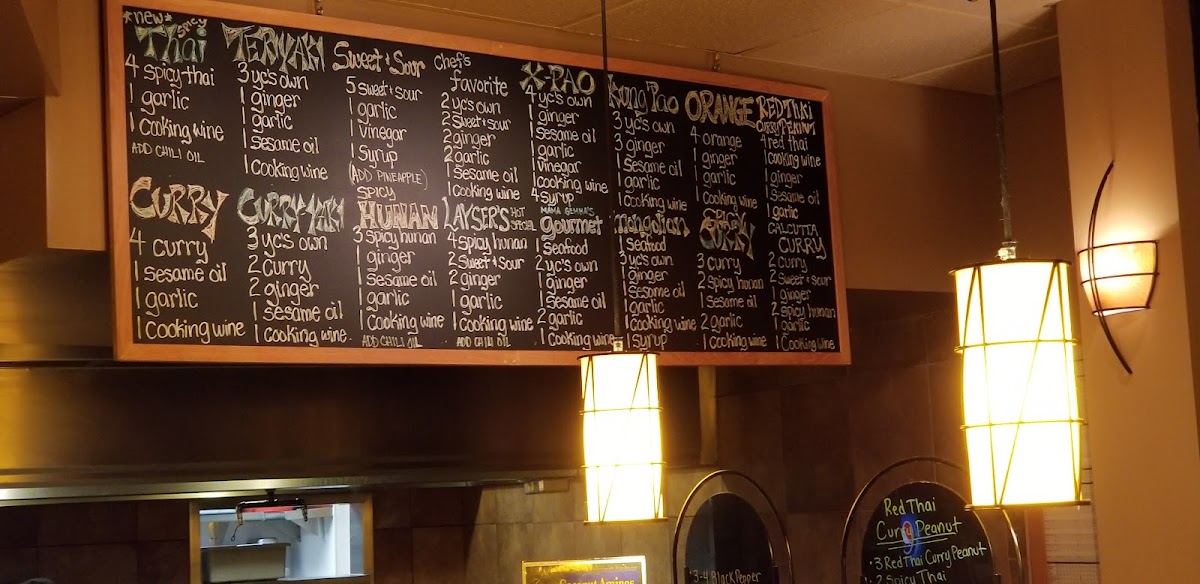 *new*
Spicy
Thai
4 spicy-thai
1 garlic
1 cooking wine
ADD CHILI OIL
TERIYAKI
3 yc's own
1 ginger
1 garlic
1 sesame oil
1 cooking wine
Sweet & Sour
5 sweet & sour
1 garlic
1 vinegar
1 syrup
(ADD PINEAPPLE)
Chef's
favorite
2 yc's own
2 sweet & sour
2 ginger
2 garlic
1 sesame oil
1 cooking wine
X-PAO
4 yc's own
1 ginger
1 sesame oil
1 garlic
1 vinegar
1 cooking wine
4 syrup
Kung Pao
3 yc's own
3 ginger
1 sesame oil
1 garlic
1 cooking wine
ORANGE
4 orange
1 ginger
1 garlic
1 cooking wine
RED THAI
CURRY PEANUT
4 red thai
1 cooking wine
1 ginger
1 sesame oil
1 garlic
CURRY
4 curry
1 sesame oil
1 garlic
1 cooking wine
CURRY-YAKI
3 yc's own
2 curry
2 ginger
1 sesame oil
1 cooking wine
SPICY
HUNAN
3 spicy hunan
1 ginger
1 sesame oil
1 garlic
1 cooking wine
ADD CHILI OIL
LAYSER'S HOT SPECIAL
4 spicy hunan
2 sweet & sour
2 ginger
1 garlic
1 cooking wine
ADD CHILI OIL
MAMA GEMMA'S
gourmet
1 seafood
2 yc's own
1 ginger
1 sesame oil
2 garlic
1 cooking wine
mongolian
1 seafood
3 yc's own
1 ginger
1 sesame oil
1 garlic
1 cooking wine
1 syrup
SPICY
CURRY
3 curry
2 spicy hunan
1 sesame oil
2 garlic
1 cooking wine
CALCUTTA
CURRY
2 curry
2 sweet & sour
1 ginger
2 spicy hunan
1 garlic
1 cooking wine
Coconut Aminos
3-4 Black Pepper
Red Thai
Curry Peanut
• 3 Red Thai Curry Peanut
• 2 Spicy Thai